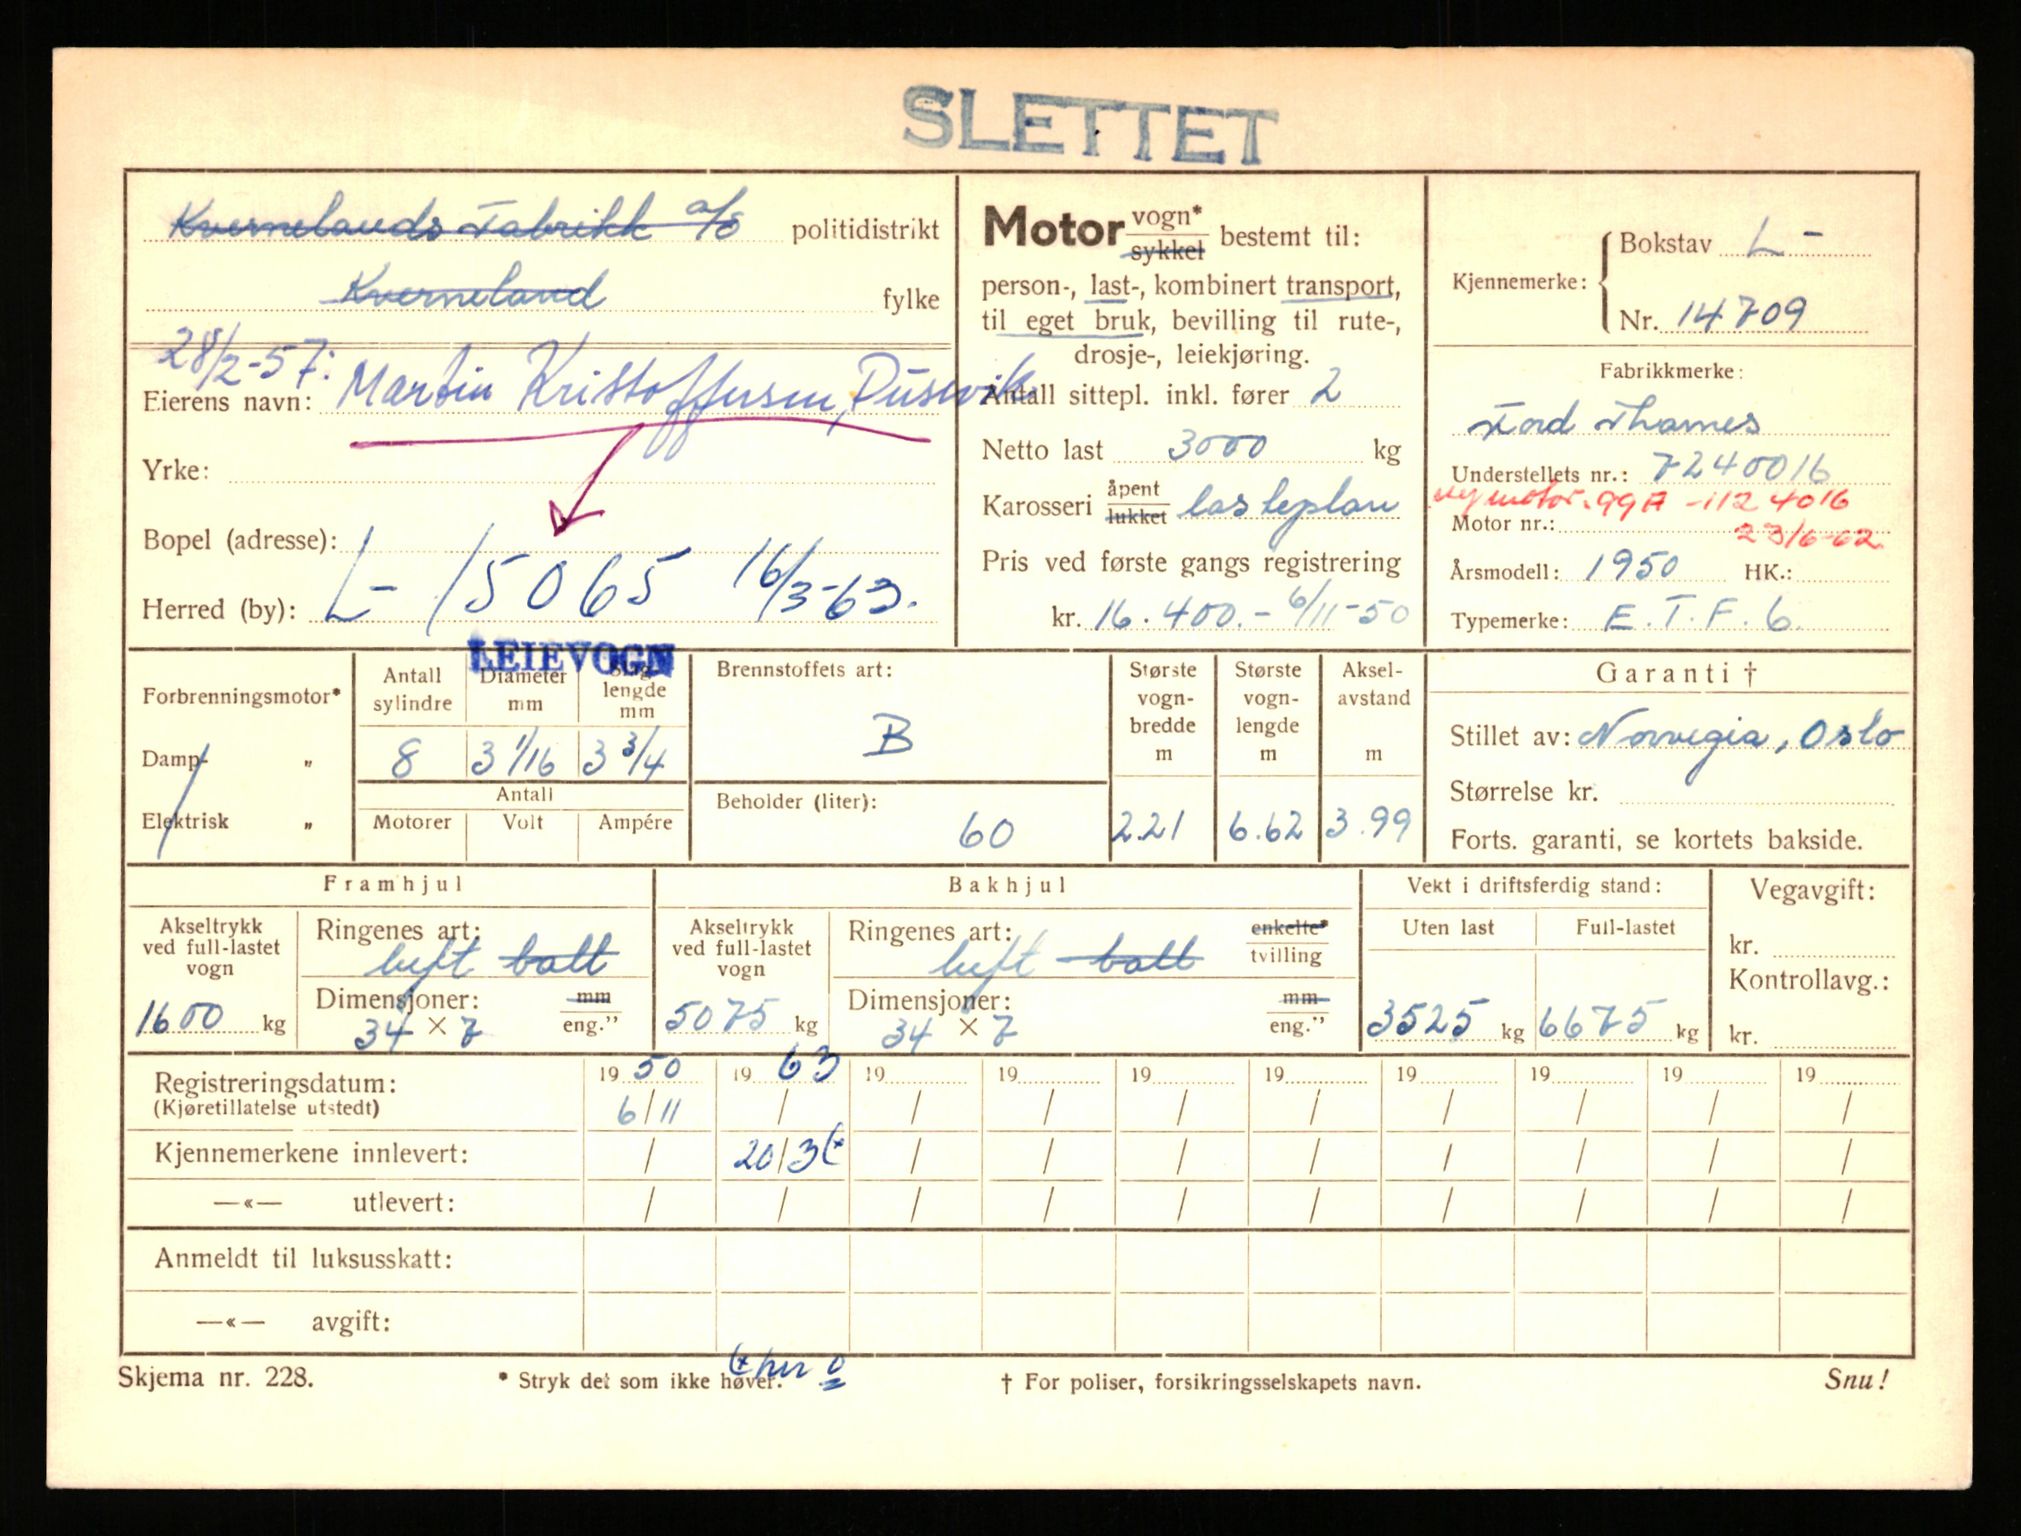 SLETTET
Kvernelands Fabrikk a/s politidistrikt
Kverneland fylke
28/2-57:
Eierens navn: Martin Kristoffersen, Dusevik
Yrke:
Bopel (adresse):
Herred (by): L- 15065 16/3-63.
LEIEVOGN
Motor vogn* sykkel bestemt til:
person-, last-, kombinert transport,
til eget bruk, bevilling til rute-,
drosje-, leiekjøring.
Antall sittepl. inkl. fører 2
Netto last 3000 kg
Karosseri åpent lukket lasteplan
Pris ved første gangs registrering
kr. 16.400.- 6/11-50
Kjennemerke:
Bokstav L-
Nr. 14709
Fabrikkmerke:
Ford Thames
Understellets nr.: 7240016
ny motor. 99A -1124016
Motor nr.: 23/6-62
Årsmodell: 1950 HK.:
Typemerke: E.T.F.6.
Forbrenningsmotor*
Damp- „
Elektrisk „
Antall sylindre
8
Diameter mm
3 1/16
Slag- lengde mm
3 3/4
Antall
Motorer Volt Ampére
Brennstoffets art:
B
Beholder (liter):
60
Største vogn- bredde m
2.21
Største vogn- lengde m
6.62
Aksel- avstand m
3.99
Garanti †
Stillet av: Norvegia, Oslo
Størrelse kr.
Forts. garanti, se kortets bakside.
Framhjul
Akseltrykk ved full-lastet vogn
1600 kg
Ringenes art:
luft ball
Dimensjoner: mm
34 × 7 eng.”
Bakhjul
Akseltrykk ved full-lastet vogn
5075 kg
Ringenes art: enkelte* tvilling
luft ball
Dimensjoner: mm
34 × 7 eng.”
Vekt i driftsferdig stand:
Uten last Full-lastet
3525 kg 6675 kg
Vegavgift:
kr.
Kontrollavg.:
kr.
Registreringsdatum: 19 50 19 63 19 19 19 19 19 19 19 19
(Kjøretillatelse utstedt) 6/11 / / / / / / / / /
Kjennemerkene innlevert: / 20/3 (* / / / / / / / /
—«— utlevert: / / / / / / / / / /
Anmeldt til luksusskatt:
—«— avgift:
Skjema nr. 228. * Stryk det som ikke høver. † For poliser, forsikringsselskapets navn. Snu!